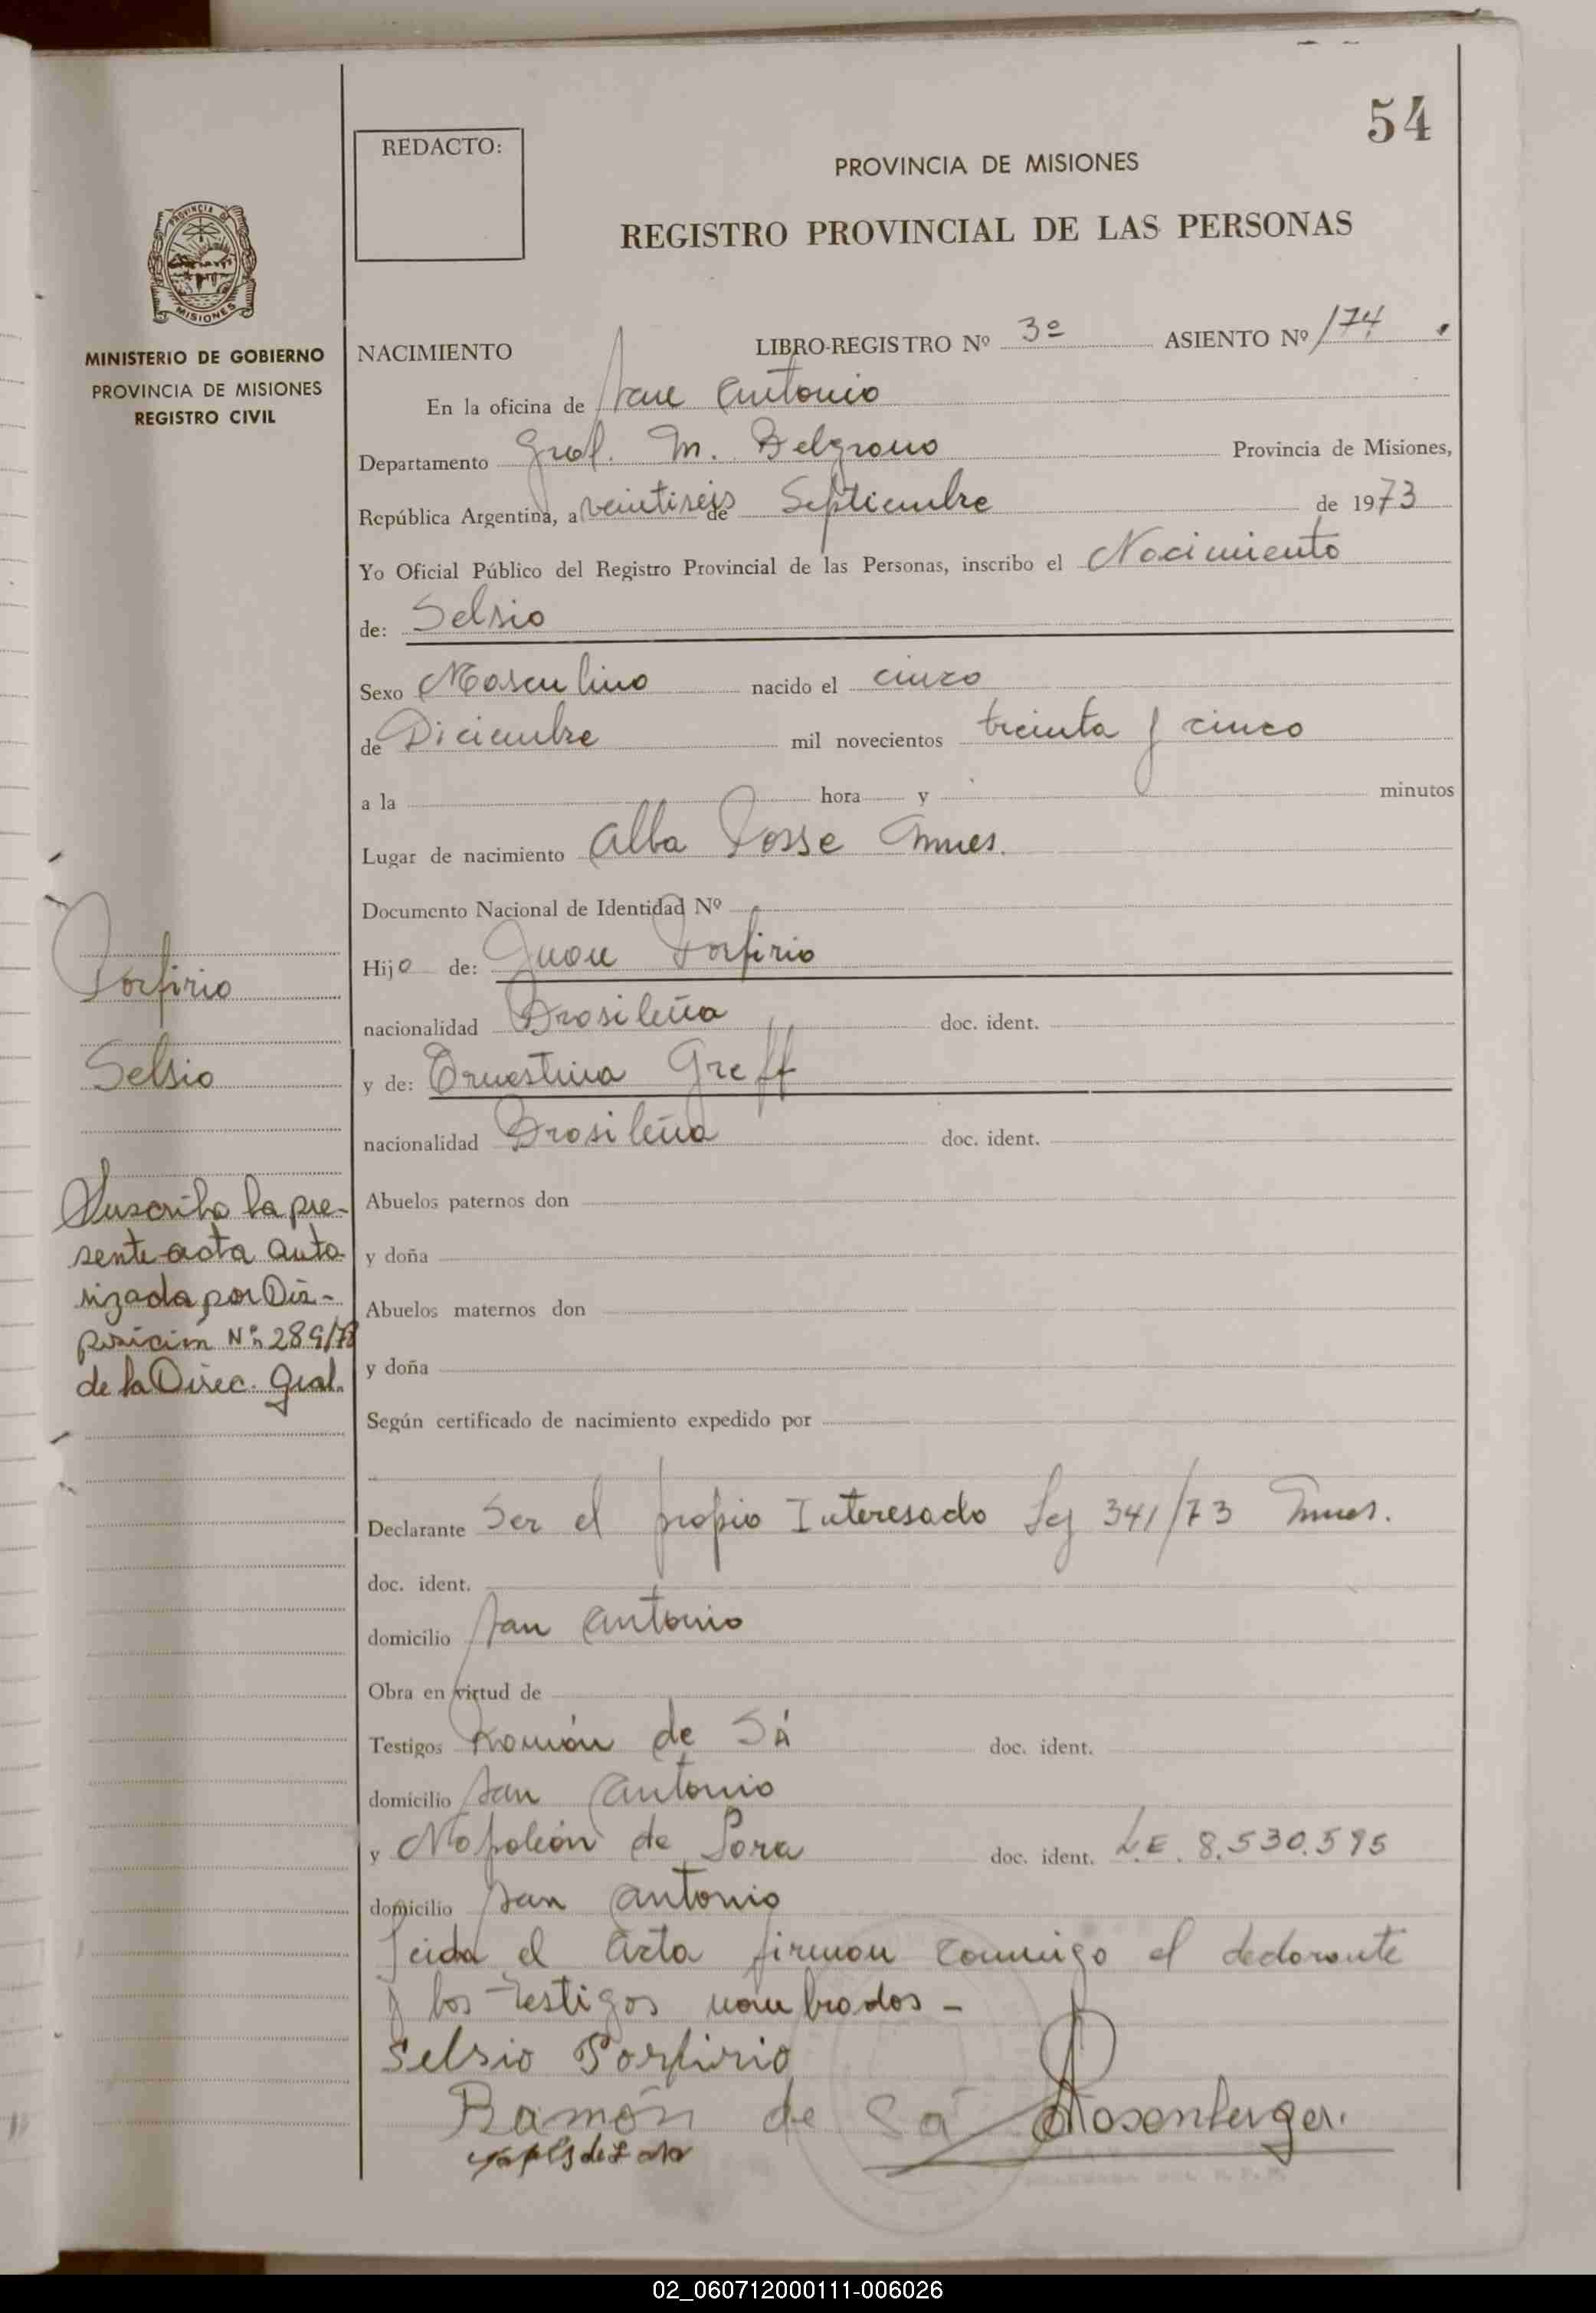 54
REDACTO:
PROVINCIA DE MISIONES
REGISTRO PROVINCIAL DE LAS PERSONAS
PROVINCIA DE
MISIONES
MINISTERIO DE GOBIERNO
PROVINCIA DE MISIONES
REGISTRO CIVIL
NACIMIENTO LIBRO-REGISTRO Nº 3º ASIENTO Nº 174
En la oficina de San Antonio
Departamento Gral. M. Belgrano Provincia de Misiones,
República Argentina, a veintiseis de Septiembre de 1973
Yo Oficial Público del Registro Provincial de las Personas, inscribo el Nacimiento
de: Selsio
Sexo Masculino nacido el cinco
de Diciembre mil novecientos treinta y cinco
a la hora y minutos
Lugar de nacimiento Alba Posse Mnes.
Documento Nacional de Identidad Nº
Hijo de: Juan Porfirio
nacionalidad Brasileña doc. ident.
y de: Ernestina Greff
nacionalidad Brasileña doc. ident.
Abuelos paternos don
y doña
Abuelos maternos don
y doña
Según certificado de nacimiento expedido por
Declarante Ser el propio Interesado Ley 341/73 Mnes.
doc. ident.
domicilio San Antonio
Obra en virtud de
Testigos Ramón de Sá doc. ident.
domicilio San Antonio
y Napoleón de Lora doc. ident. L.E. 8.530.595
domicilio San Antonio
Leida el Acta firman conmigo el declarante
y los Testigos nombrados -
Selsio Porfirio
Ramón de Sá Rosenberger.
Porfirio
Selsio
Suscribo la pre-
sente acta auto-
rizada por Dis-
posición Nº 289/78
de la Direc. Gral.
02_060712000111-006026